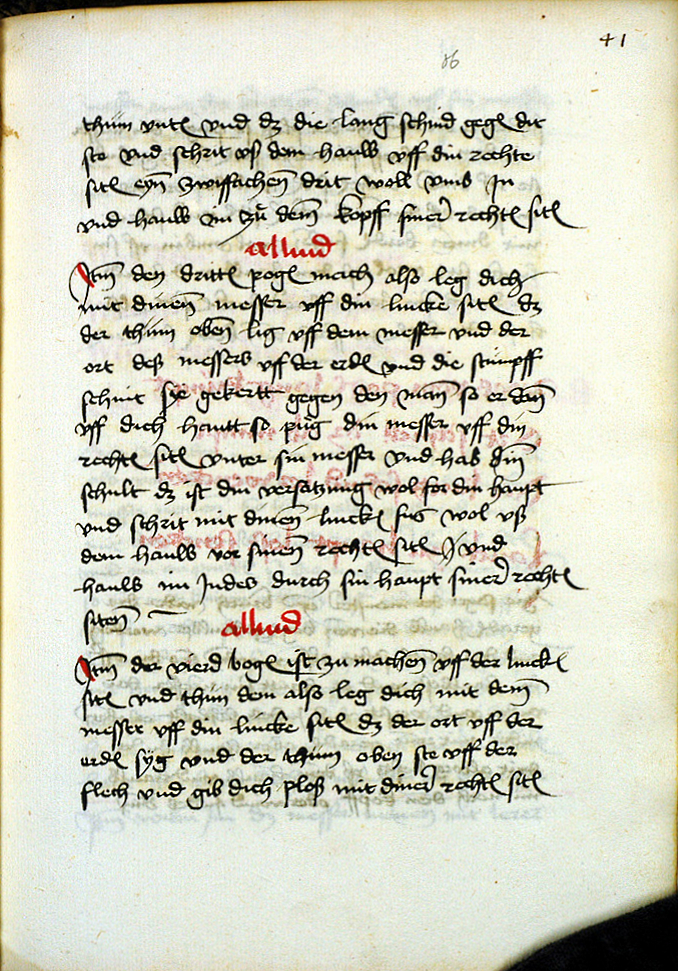 41
86
thum unten vnd dz die lang schnid gegen dir
ste vnd schrit vß dem hauw vff din rechte
siten eyn zwiffachen drit woll vmb jn
vnd hauw im zu dem kopff siner rechten siten
alliud
Item den dritten pogen mach also leg dich
mit dinem messer vff din lincke siten dz
der thum oben lig vff dem messer vnd der
ort deß messers vff der erden vnd die stumpff
schnit sye gekertt gegen den man so er dan
vff dich hautt so pug din messer vff din
rechten siten vnter sin messer vnd hab din
schult dz ist din versatzung wol for din haupt
vnd schrit mit dinem lincken fus wol vß
dem hauw vor sinen rechten siten vnd
hauw im Indes durch sin haupt siner rechten
siten
alliud
Item der vierd bogen ist zu machen vff der lincken
siten vnd thun dem also leg dich mit dem
messer vff din lincke siten dz der ort vff der
erden syg vnd der thum oben ste vff der
flech vnd gib dich ploß mit diner rechten siten